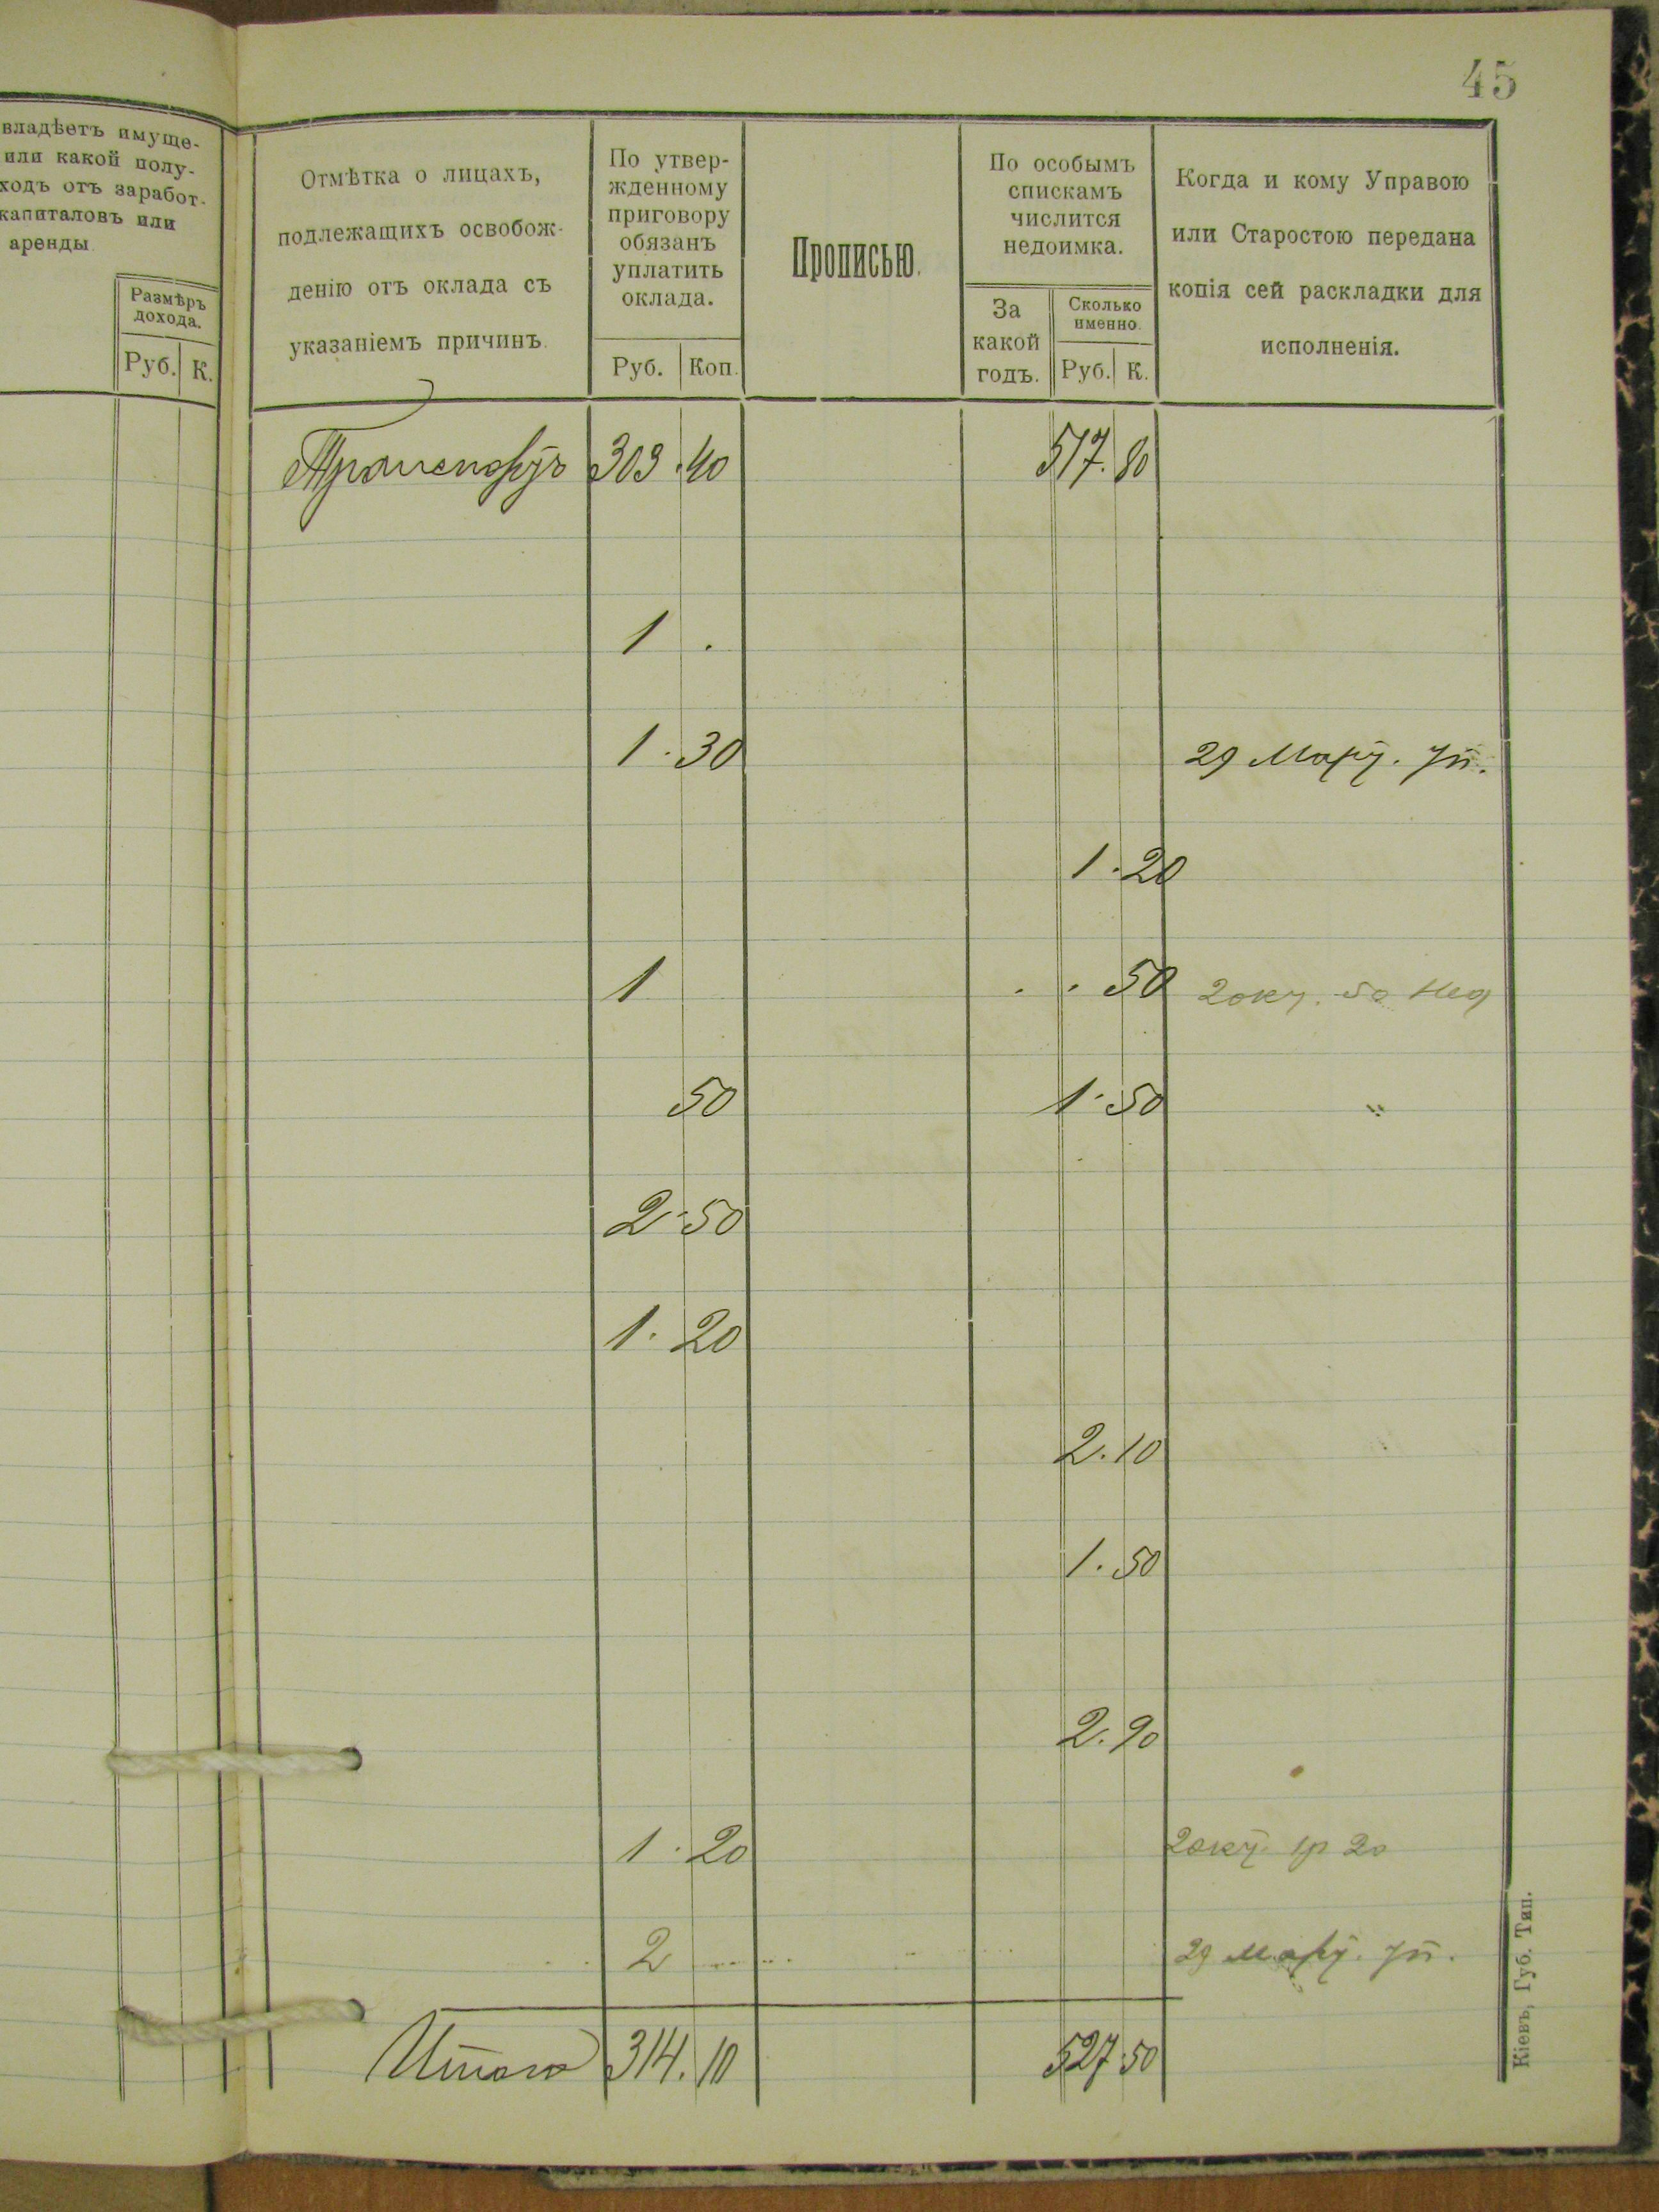 45
владѣетъ имуще-
или какой полу-
ходъ отъ заработ-
капиталовъ или
аренды.
Размѣръ
дохода.
Руб. К.
Отмѣтка о лицахъ,
подлежащихъ освобож-
денію отъ оклада съ
указаніемъ причинъ.
По утвер-
жденному
приговору
обязанъ
уплатить
оклада.
Руб. Коп.
Прописью.
По особымъ
спискамъ
числится
недоимка.
За
какой
годъ.
Сколько
именно.
Руб. К.
Когда и кому Управою
или Старостою передана
копія сей раскладки для
исполненія.
Транспортъ 303.40 517.80
1 .
1.30 29 Март. уп.
1.20
1 . . 50 2 окт. 50 нед
50 1.50 "
2.50
1.20
2.10
1.50
2.90
1.20 2 окт. 1р 20
2 29 Март. уп.
Итого 314.10 527.50
Кіевъ, Губ. Тип.